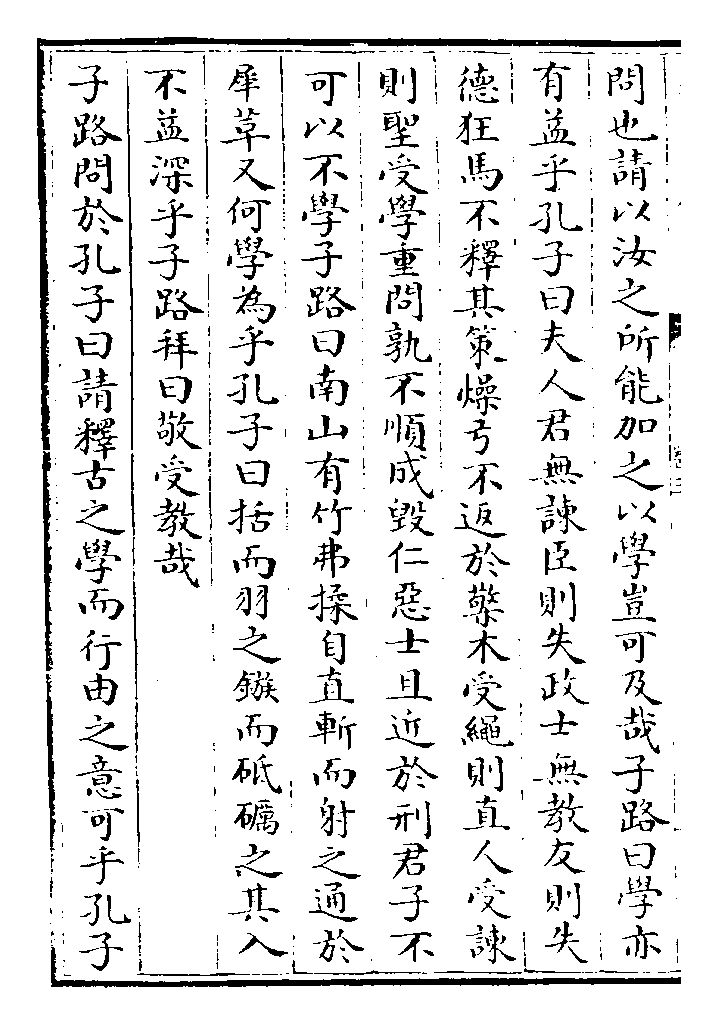 問也請以汝之所能加之以學豈可及哉子路曰學亦
有益乎孔子曰夫人君無諫臣則失政士無教友則失
德狂馬不釋其策燥弓不返於檠木受繩則直人受諫
則聖受學重問孰不順成毀仁惡士且近於刑君子不
可以不學子路曰南山有竹弗揉自直斬而射之通於
犀革又何學為乎孔子曰括而羽之鏃而砥礪之其入
不益深乎子路拜曰敬受教哉
子路問於孔子曰請釋古之學而行由之意可乎孔子